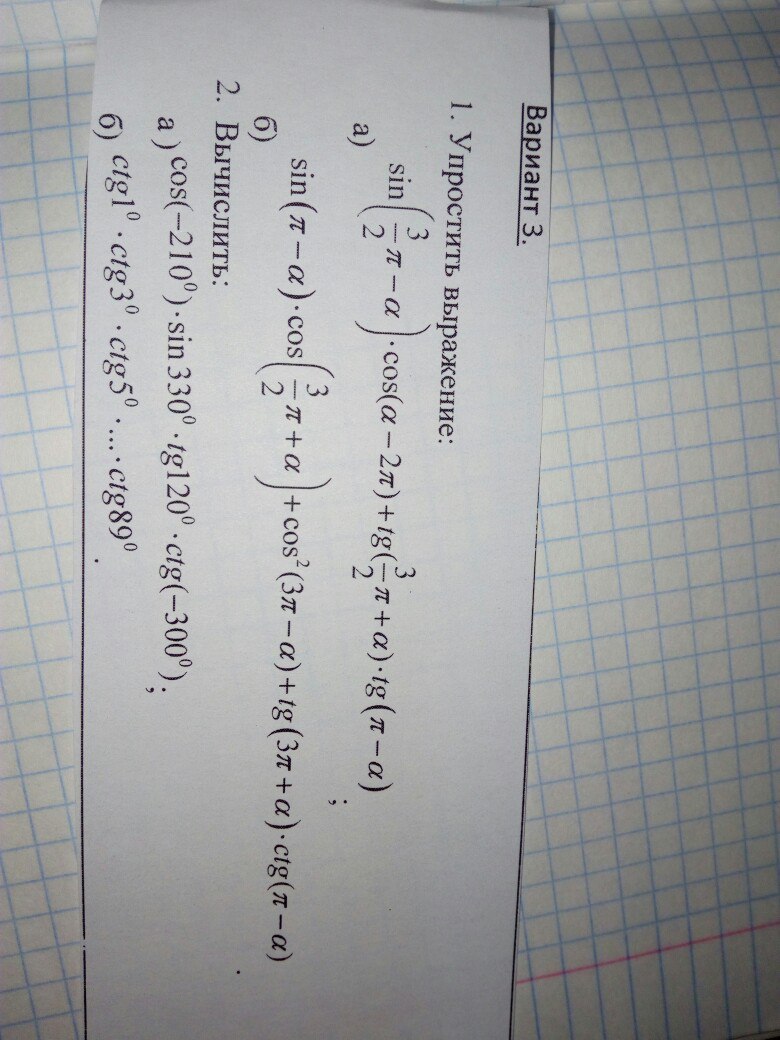 Вариант 3.
1. Упростить выражение:
а) sin(3/2 π − α)·cos(α − 2π) + tg(3/2 π + α)·tg(π − α) ;
б) sin(π − α)·cos(3/2 π + α) + cos²(3π − α) + tg(3π + α)·ctg(π − α) .
2. Вычислить:
а) cos(−210⁰)·sin330⁰·tg120⁰·ctg(−300⁰);
б) ctg1⁰·ctg3⁰·ctg5⁰·...·ctg89⁰.